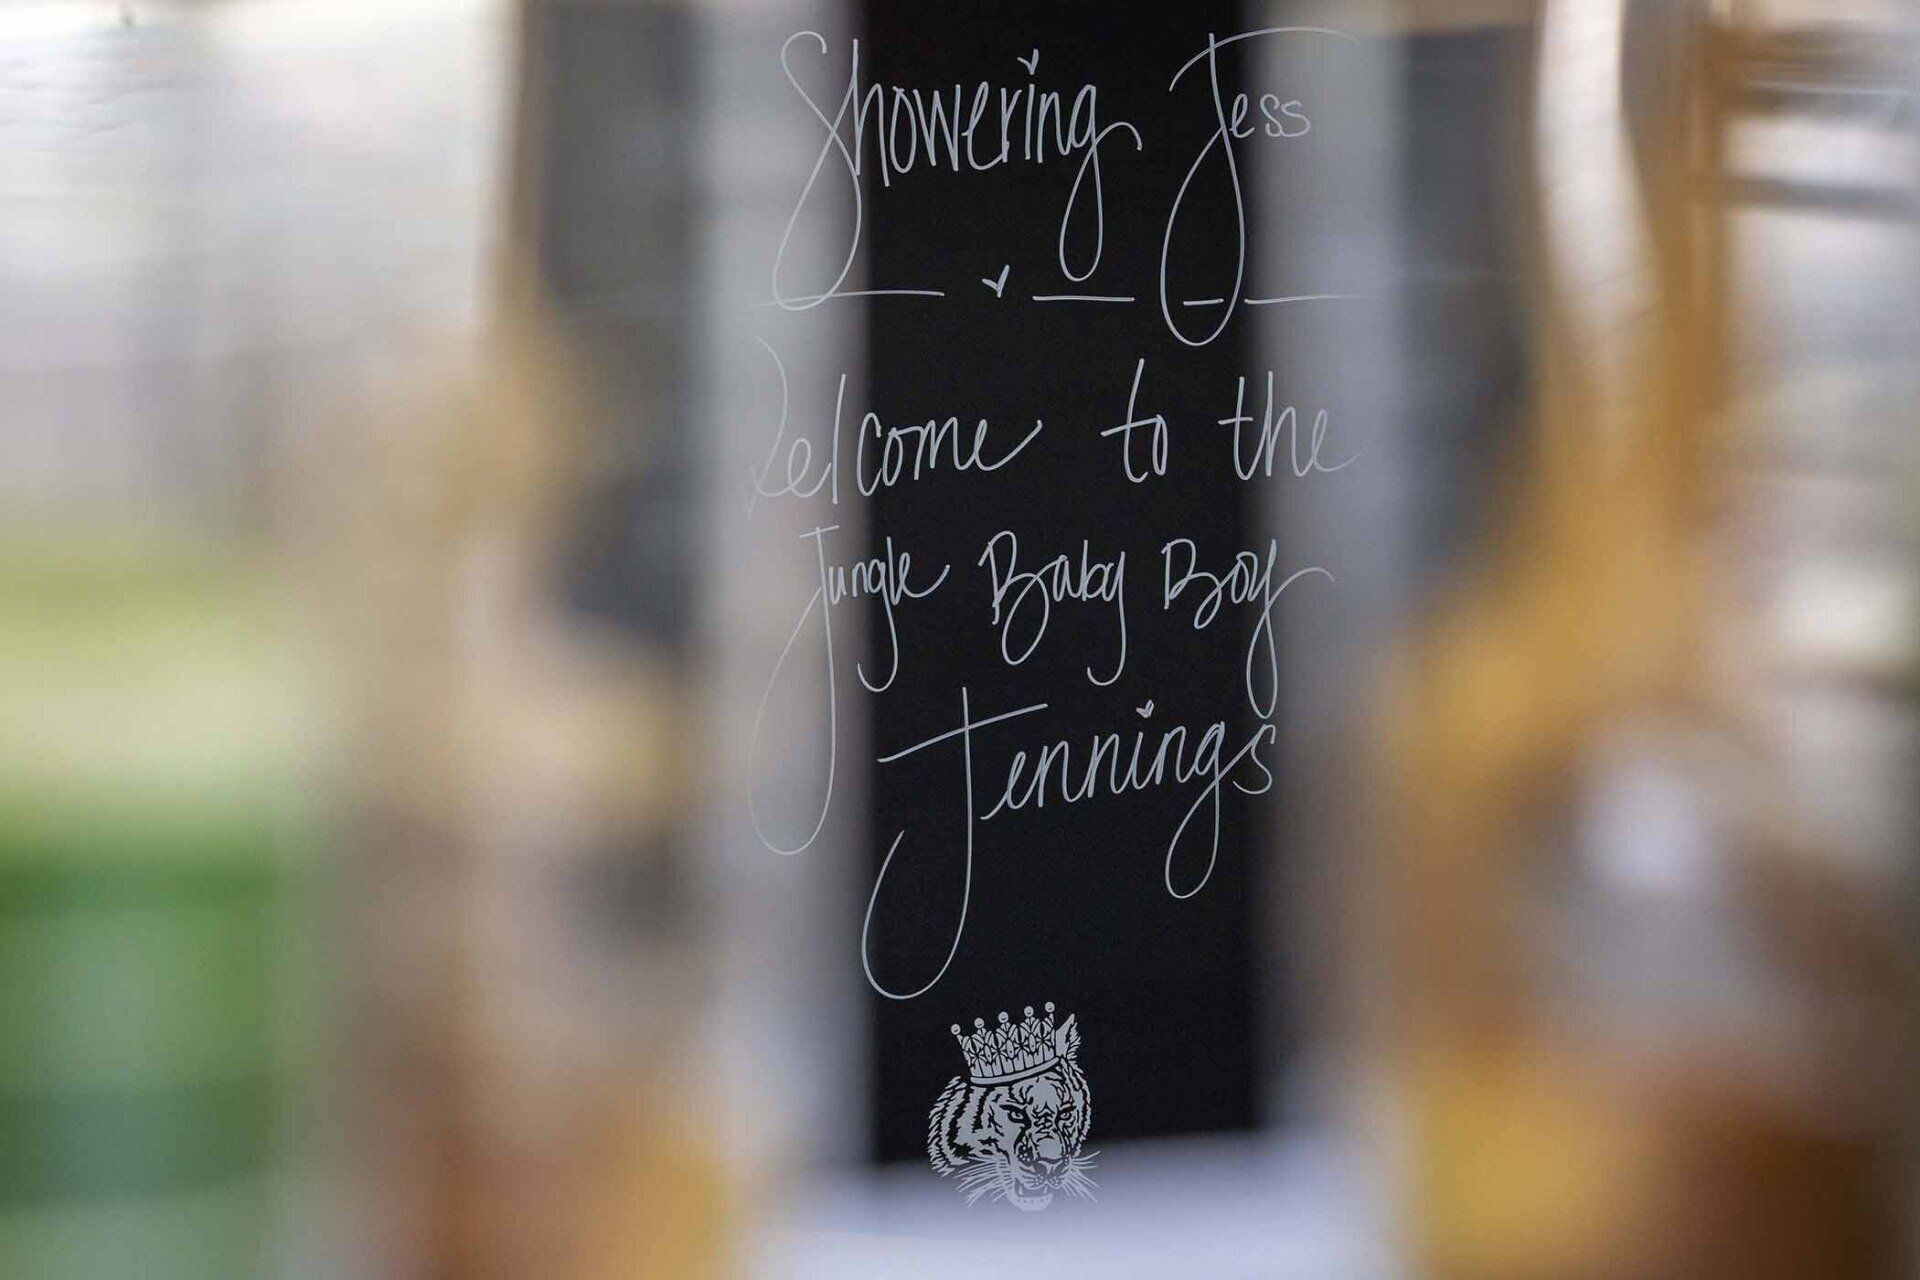 Showering Jess
Welcome to the
Jungle Baby Boy
Jennings